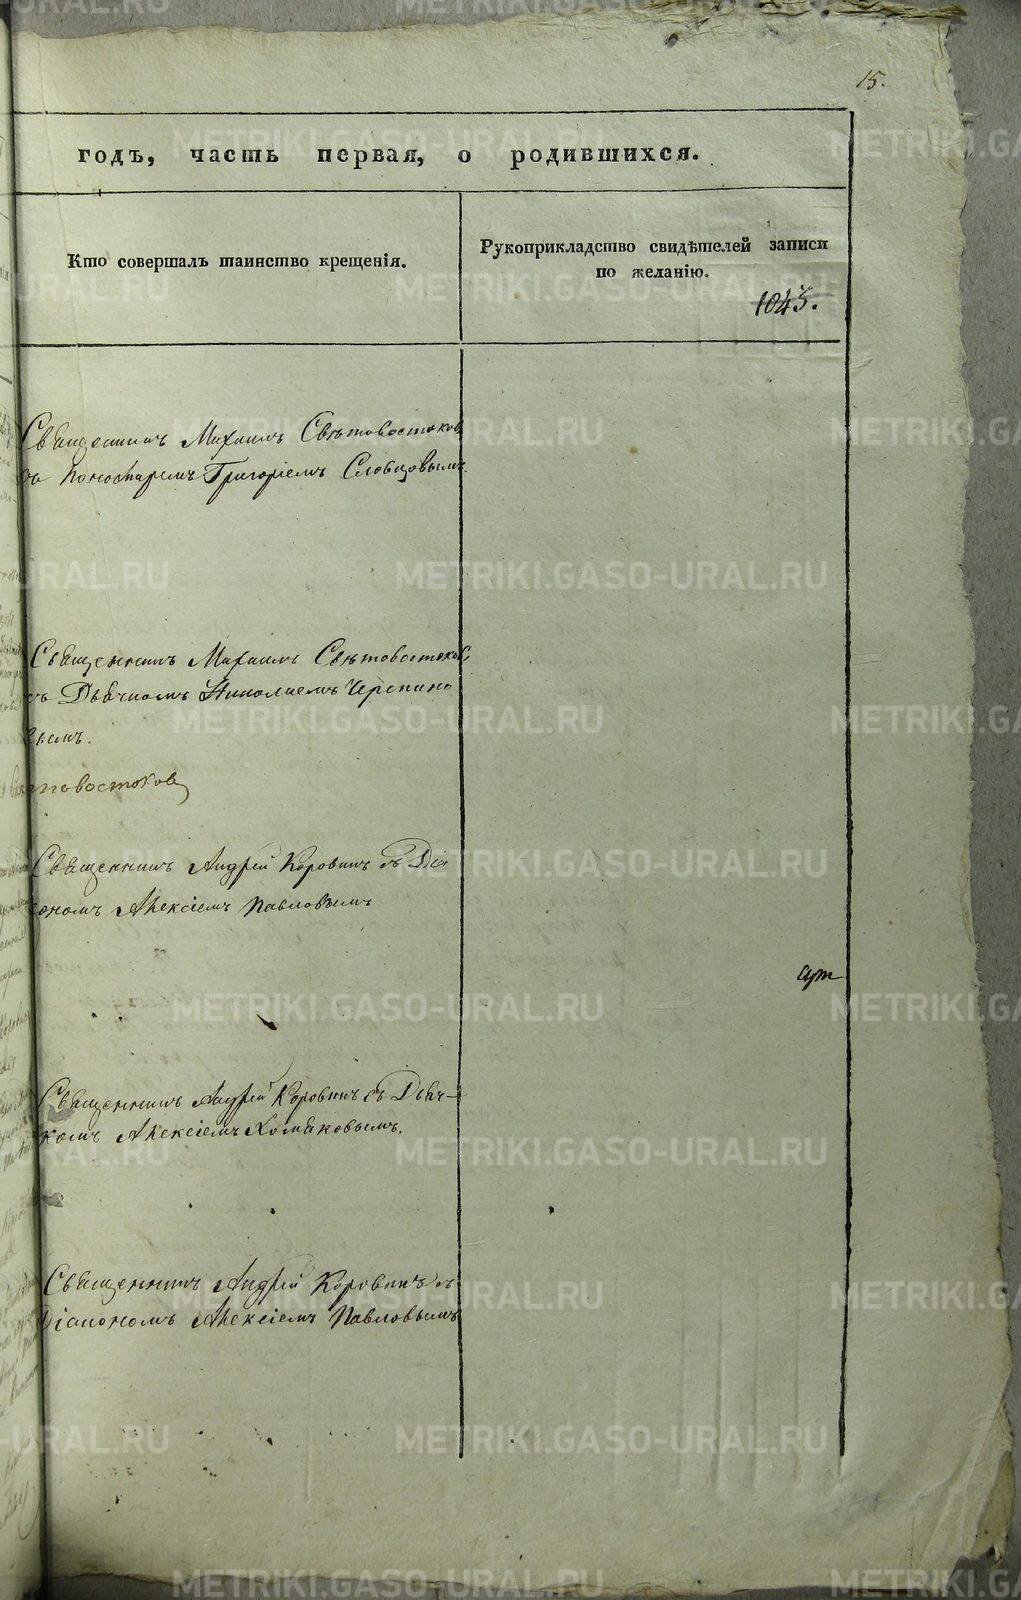 15.
годъ, часть первая, о родившихся.
Кто совершалъ таинство крещенія.
Рукоприкладство свидѣтелей записи
по желанію.
1043.
Священникъ Михаилъ Свѣтовостоковъ
съ Пономаремъ Григоріемъ Словцовымъ.
Священникъ Михаилъ Свѣтовостоковъ
съ Дьячкомъ Николаемъ Черепано
вымъ.
товостоковъ
Священникъ Андрей Коровинъ съ Діа
кономъ Алексіемъ Павловымъ
Священникъ Андрей Коровинъ съ Дьяч-
комъ Алексіемъ Хомяковымъ.
Священникъ Андрей Коровинъ съ
Діакономъ Алексіемъ Павловымъ
METRIKI.GASO-URAL.RU